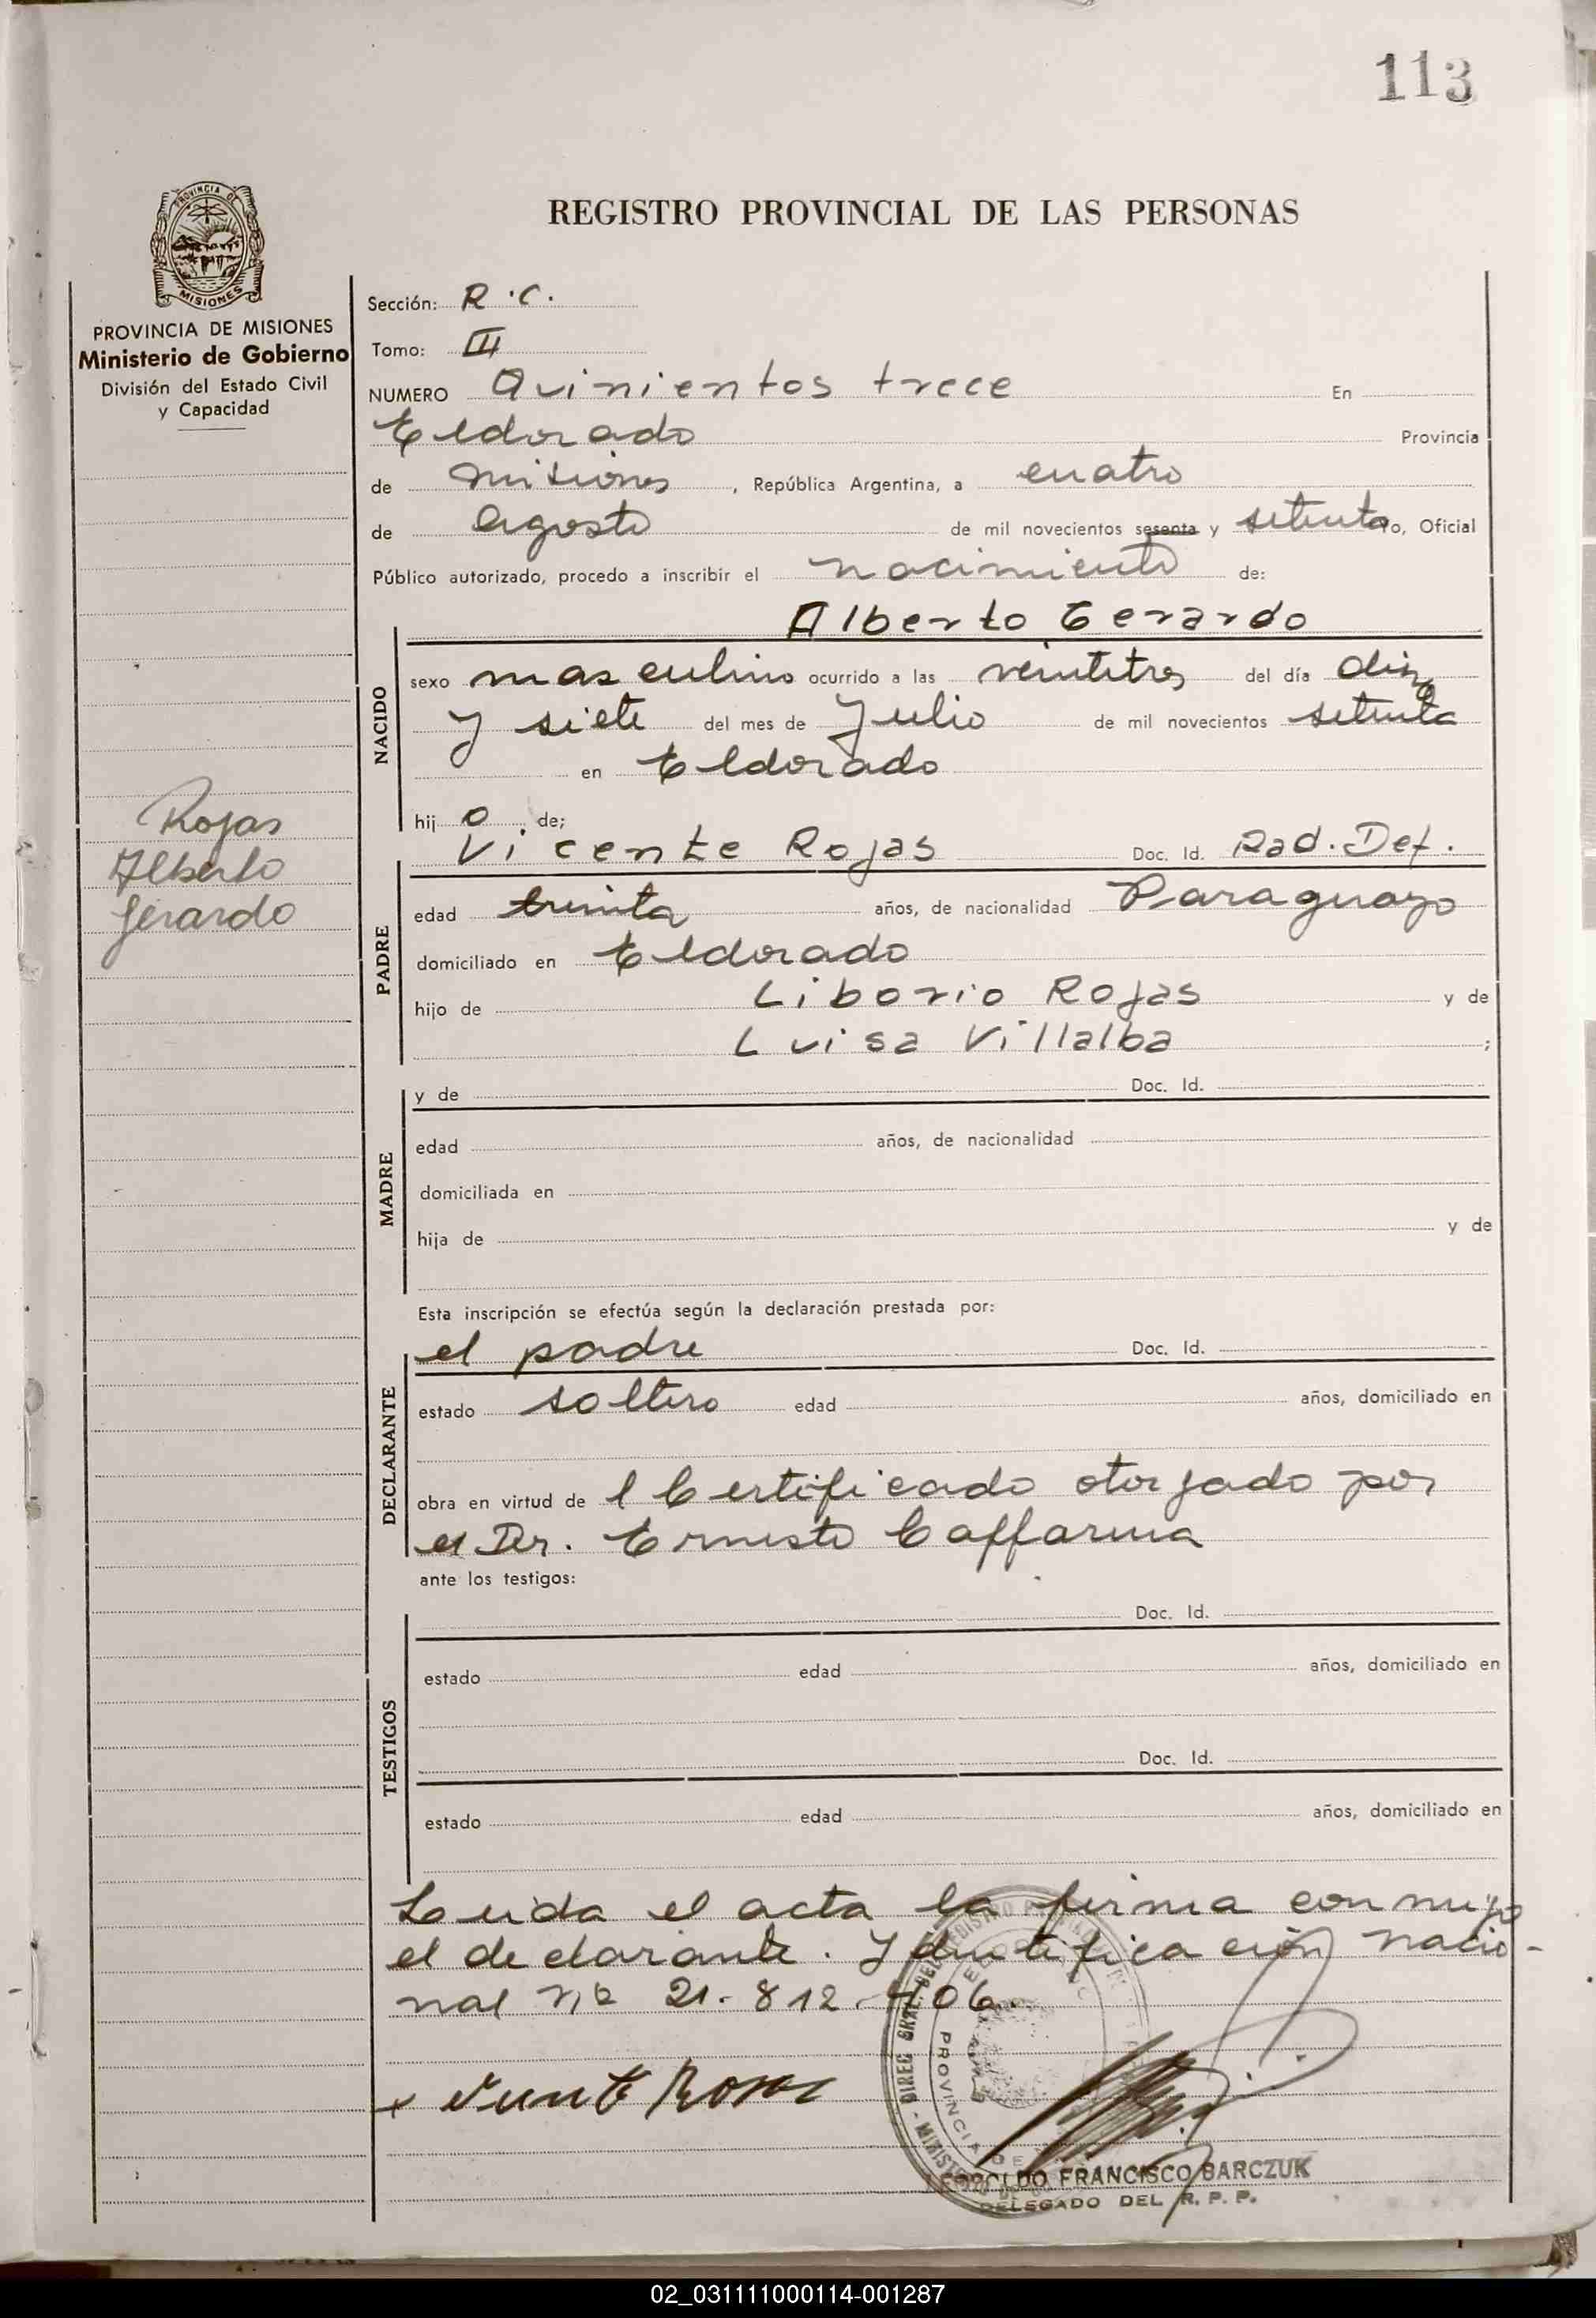 113
REGISTRO PROVINCIAL DE LAS PERSONAS
PROVINCIA DE
MISIONES
PROVINCIA DE MISIONES
Ministerio de Gobierno
División del Estado Civil
y Capacidad
Rojas
Alberto
Gerardo
Sección: R.C.
Tomo: III
NUMERO Quinientos trece En
Eldorado Provincia
de Misiones, República Argentina, a cuatro
de Agosto de mil novecientos sesenta y setenta yo, Oficial
Público autorizado, procedo a inscribir el nacimiento de:
Alberto Gerardo
NACIDO
sexo masculino ocurrido a las veintitres del día diez
y siete del mes de Julio de mil novecientos setenta
en Eldorado
hij o de;
PADRE
Vicente Rojas Doc. Id. Rad. Def.
edad treinta años, de nacionalidad Paraguayo
domiciliado en Eldorado
hijo de Liborio Rojas y de
Luisa Villalba ;
MADRE
y de Doc. Id.
edad años, de nacionalidad
domiciliada en
hija de y de
Esta inscripción se efectúa según la declaración prestada por:
DECLARANTE
el padre Doc. Id.
estado soltero edad años, domiciliado en
obra en virtud de l Certificado otorgado por
el Dr. Ernesto Caffarena
ante los testigos:
TESTIGOS
Doc. Id.
estado edad años, domiciliado en
Doc. Id.
estado edad años, domiciliado en
Leida el acta la firma conmigo
el declarante. Identificación nacio-
nal nº 21.812.406.
Vicente Rojas
LEOPOLDO FRANCISCO BARCZUK
DELEGADO DEL R. P. P.
02_031111000114-001287